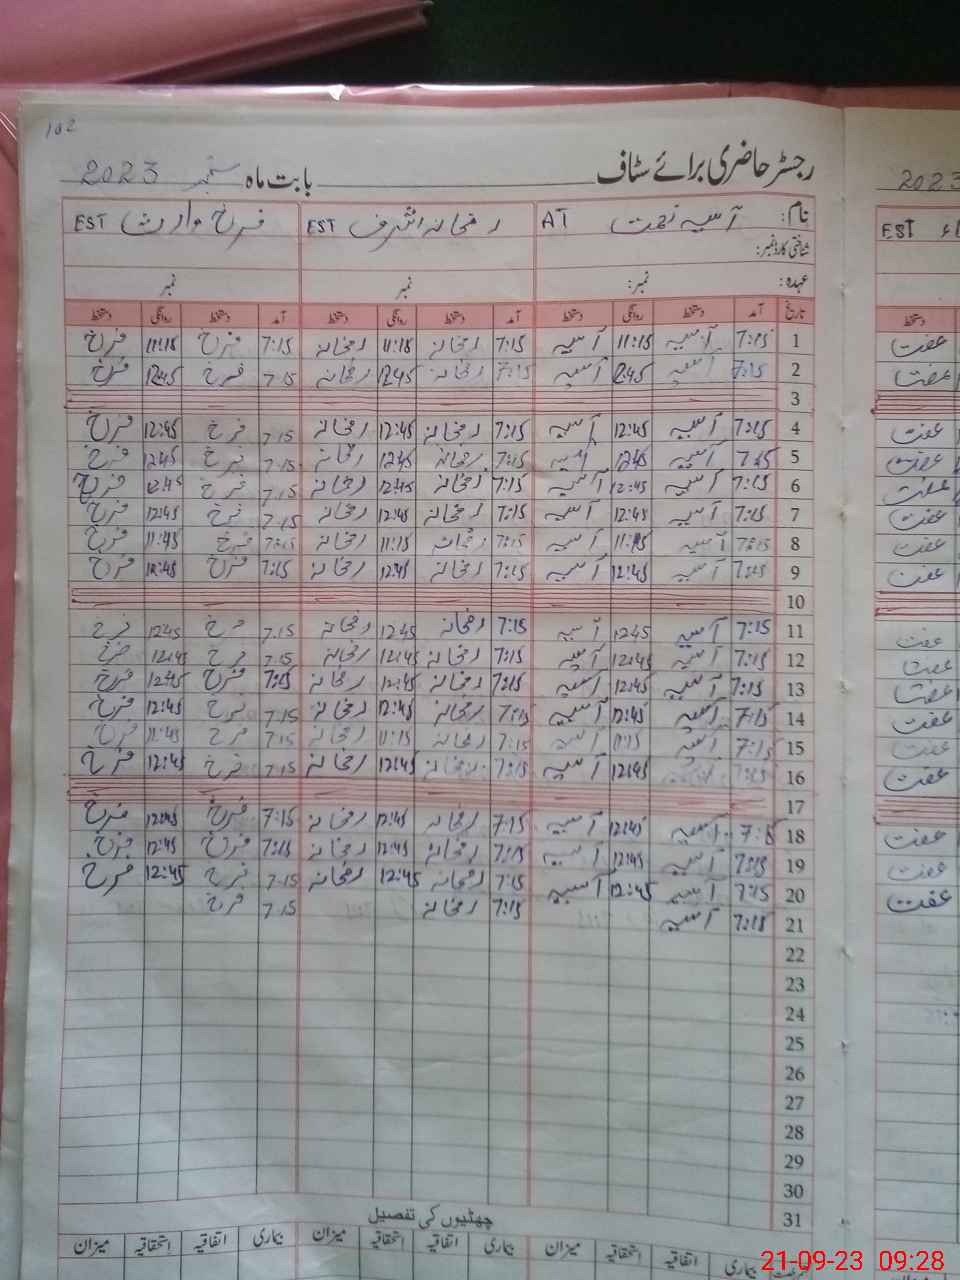 102
رجسٹر حاضری برائے سٹاف بابت ماہ ستمبر 2023
نام: آسیہ نعمت AT رخسانہ اشرف EST فرخ وارث EST
شناختی کارڈ نمبر:
عہدہ: نمبر: نمبر نمبر
تاریخ آمد دستخط روانگی دستخط آمد دستخط روانگی دستخط آمد دستخط روانگی دستخط
1 7:15 آسیہ 11:15 آسیہ 7:15 رخسانہ 11:15 رخسانہ 7:15 فرخ 11:15 فرخ
2 7:15 آسیہ 12:45 آسیہ 7:15 رخسانہ 12:45 رخسانہ 7:15 فرخ 12:45 فرخ
3
4 7:15 آسیہ 12:45 آسیہ 7:15 رخسانہ 12:45 رخسانہ 7:15 فرخ 12:45 فرخ
5 7:15 آسیہ 12:45 آسیہ 7:15 رخسانہ 12:45 رخسانہ 7:15 فرخ 12:45 فرخ
6 7:15 آسیہ 12:45 آسیہ 7:15 رخسانہ 12:45 رخسانہ 7:15 فرخ 12:45 فرخ
7 7:15 آسیہ 12:45 آسیہ 7:15 رخسانہ 12:45 رخسانہ 7:15 فرخ 12:45 فرخ
8 7:15 آسیہ 11:15 آسیہ 7:15 رخسانہ 11:15 رخسانہ 7:15 فرخ 11:45 فرخ
9 7:15 آسیہ 12:45 آسیہ 7:15 رخسانہ 12:45 رخسانہ 7:15 فرخ 12:45 فرخ
10
11 7:15 آسیہ 12:45 آسیہ 7:15 رخسانہ 12:45 رخسانہ 7:15 فرخ 12:45 فرخ
12 7:15 آسیہ 12:45 آسیہ 7:15 رخسانہ 12:45 رخسانہ 7:15 فرخ 12:45 فرخ
13 7:15 آسیہ 12:45 آسیہ 7:15 رخسانہ 12:45 رخسانہ 7:15 فرخ 12:45 فرخ
14 7:15 آسیہ 12:45 آسیہ 7:15 رخسانہ 12:45 رخسانہ 7:15 فرخ 12:45 فرخ
15 7:15 آسیہ 11:15 آسیہ 7:15 رخسانہ 11:15 رخسانہ 7:15 فرخ 11:45 فرخ
16 7:15 12:45 آسیہ 7:15 رخسانہ 12:45 رخسانہ 7:15 فرخ 12:45 فرخ
17
18 7:15 آسیہ 12:45 آسیہ 7:15 رخسانہ 12:45 رخسانہ 7:15 فرخ 12:45 فرخ
19 7:15 آسیہ 12:45 آسیہ 7:15 رخسانہ 12:45 رخسانہ 7:15 فرخ 12:45 فرخ
20 7:15 آسیہ 12:45 آسیہ 7:15 رخسانہ 12:45 رخسانہ 7:15 فرخ 12:45 فرخ
21 7:15 آسیہ 7:15 رخسانہ 7:15 فرخ
22
23
24
25
26
27
28
29
30
31
چھٹیوں کی تفصیل
بیماری اتفاقیہ استحقاقیہ میزان بیماری اتفاقیہ استحقاقیہ میزان بیماری اتفاقیہ استحقاقیہ میزان
2023
EST
دستخط
عفت
عفت
عفت
عفت
عفت
عفت
عفت
عفت
عفت
عفت
عفت
عفت
عفت
عفت
عفت
عفت
عفت
21-09-23 09:28